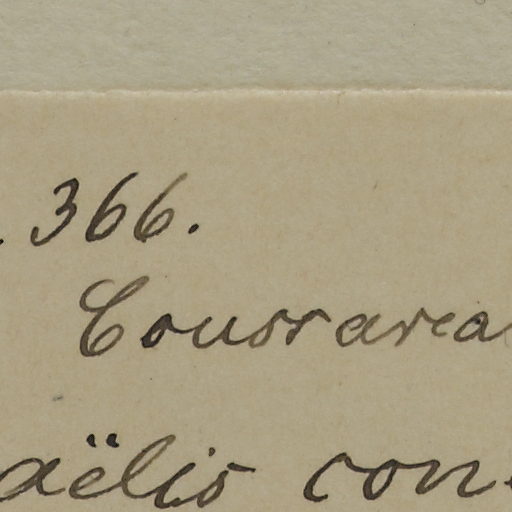 . 366.
Coussarea
aëlis con